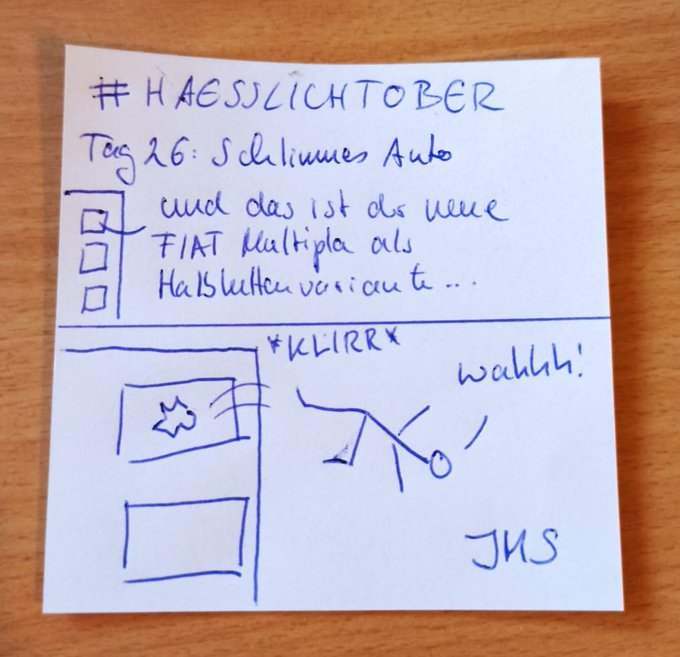 #HAESSLICHTOBER
Tag 26: Schlimmes Auto
und das ist der neue
FIAT Multipla als
Halbkettenvariante...
*KLIRR*
wahhh!
JMS